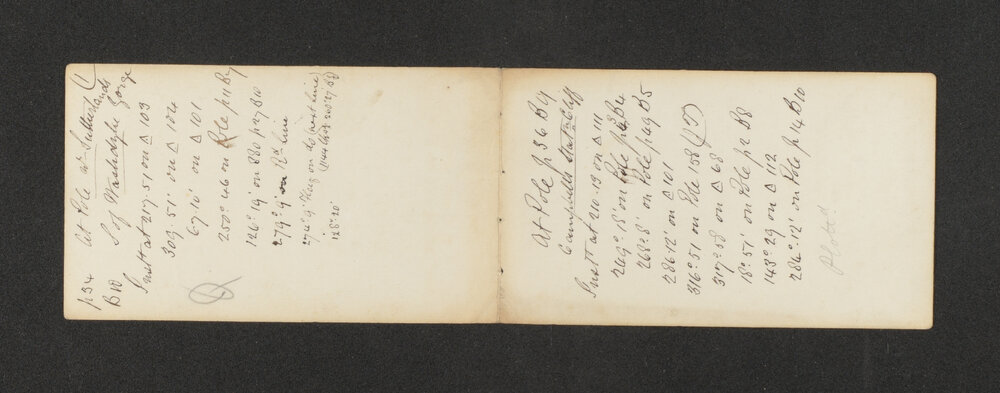 p34 At Pole nr Sutherlands (1
B10 S of Washdyke Gorge
Instt at 217.51 on △ 103
309.51' on △ 104
67.10' on △ 101
250°.46 on Pole p11 B7
126°.19' on 280 p27 B10
279°.9' on Rd line
128°.20'
At Pole p 56 B4
Campbells Statn Cliff
Instt at 210.13 on △ 111
269°.15' on Pole p63 B4
268°.8' on Pole p49 B5
286.12' on △ 101
316°.51 on Pole 158
317°.58 on △ 68
18°.51' on Pole p2 B8
143°.29 on △ 112
286°.12' on Pole p14 B10
Plotted